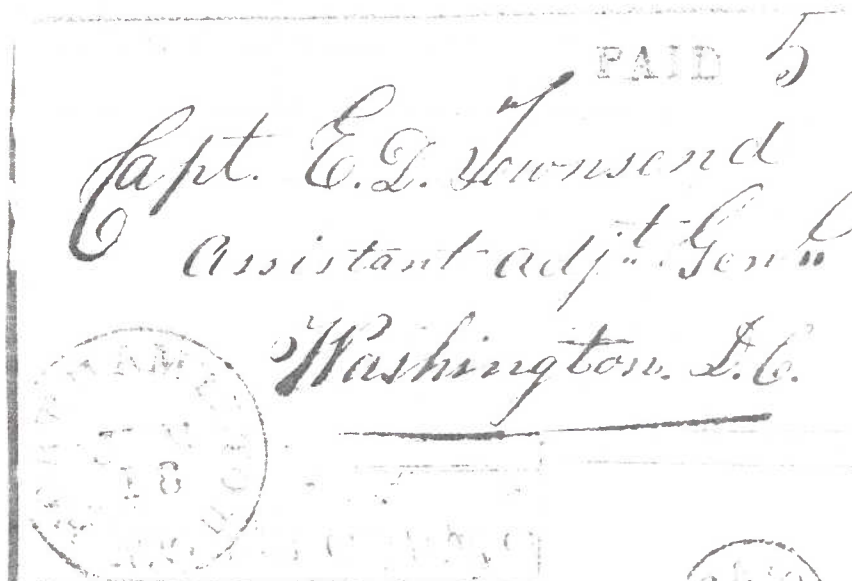 PAID 5
Capt. E. D. Townsend
Assistant Adjt. Genl.
Washington. D.C.
18